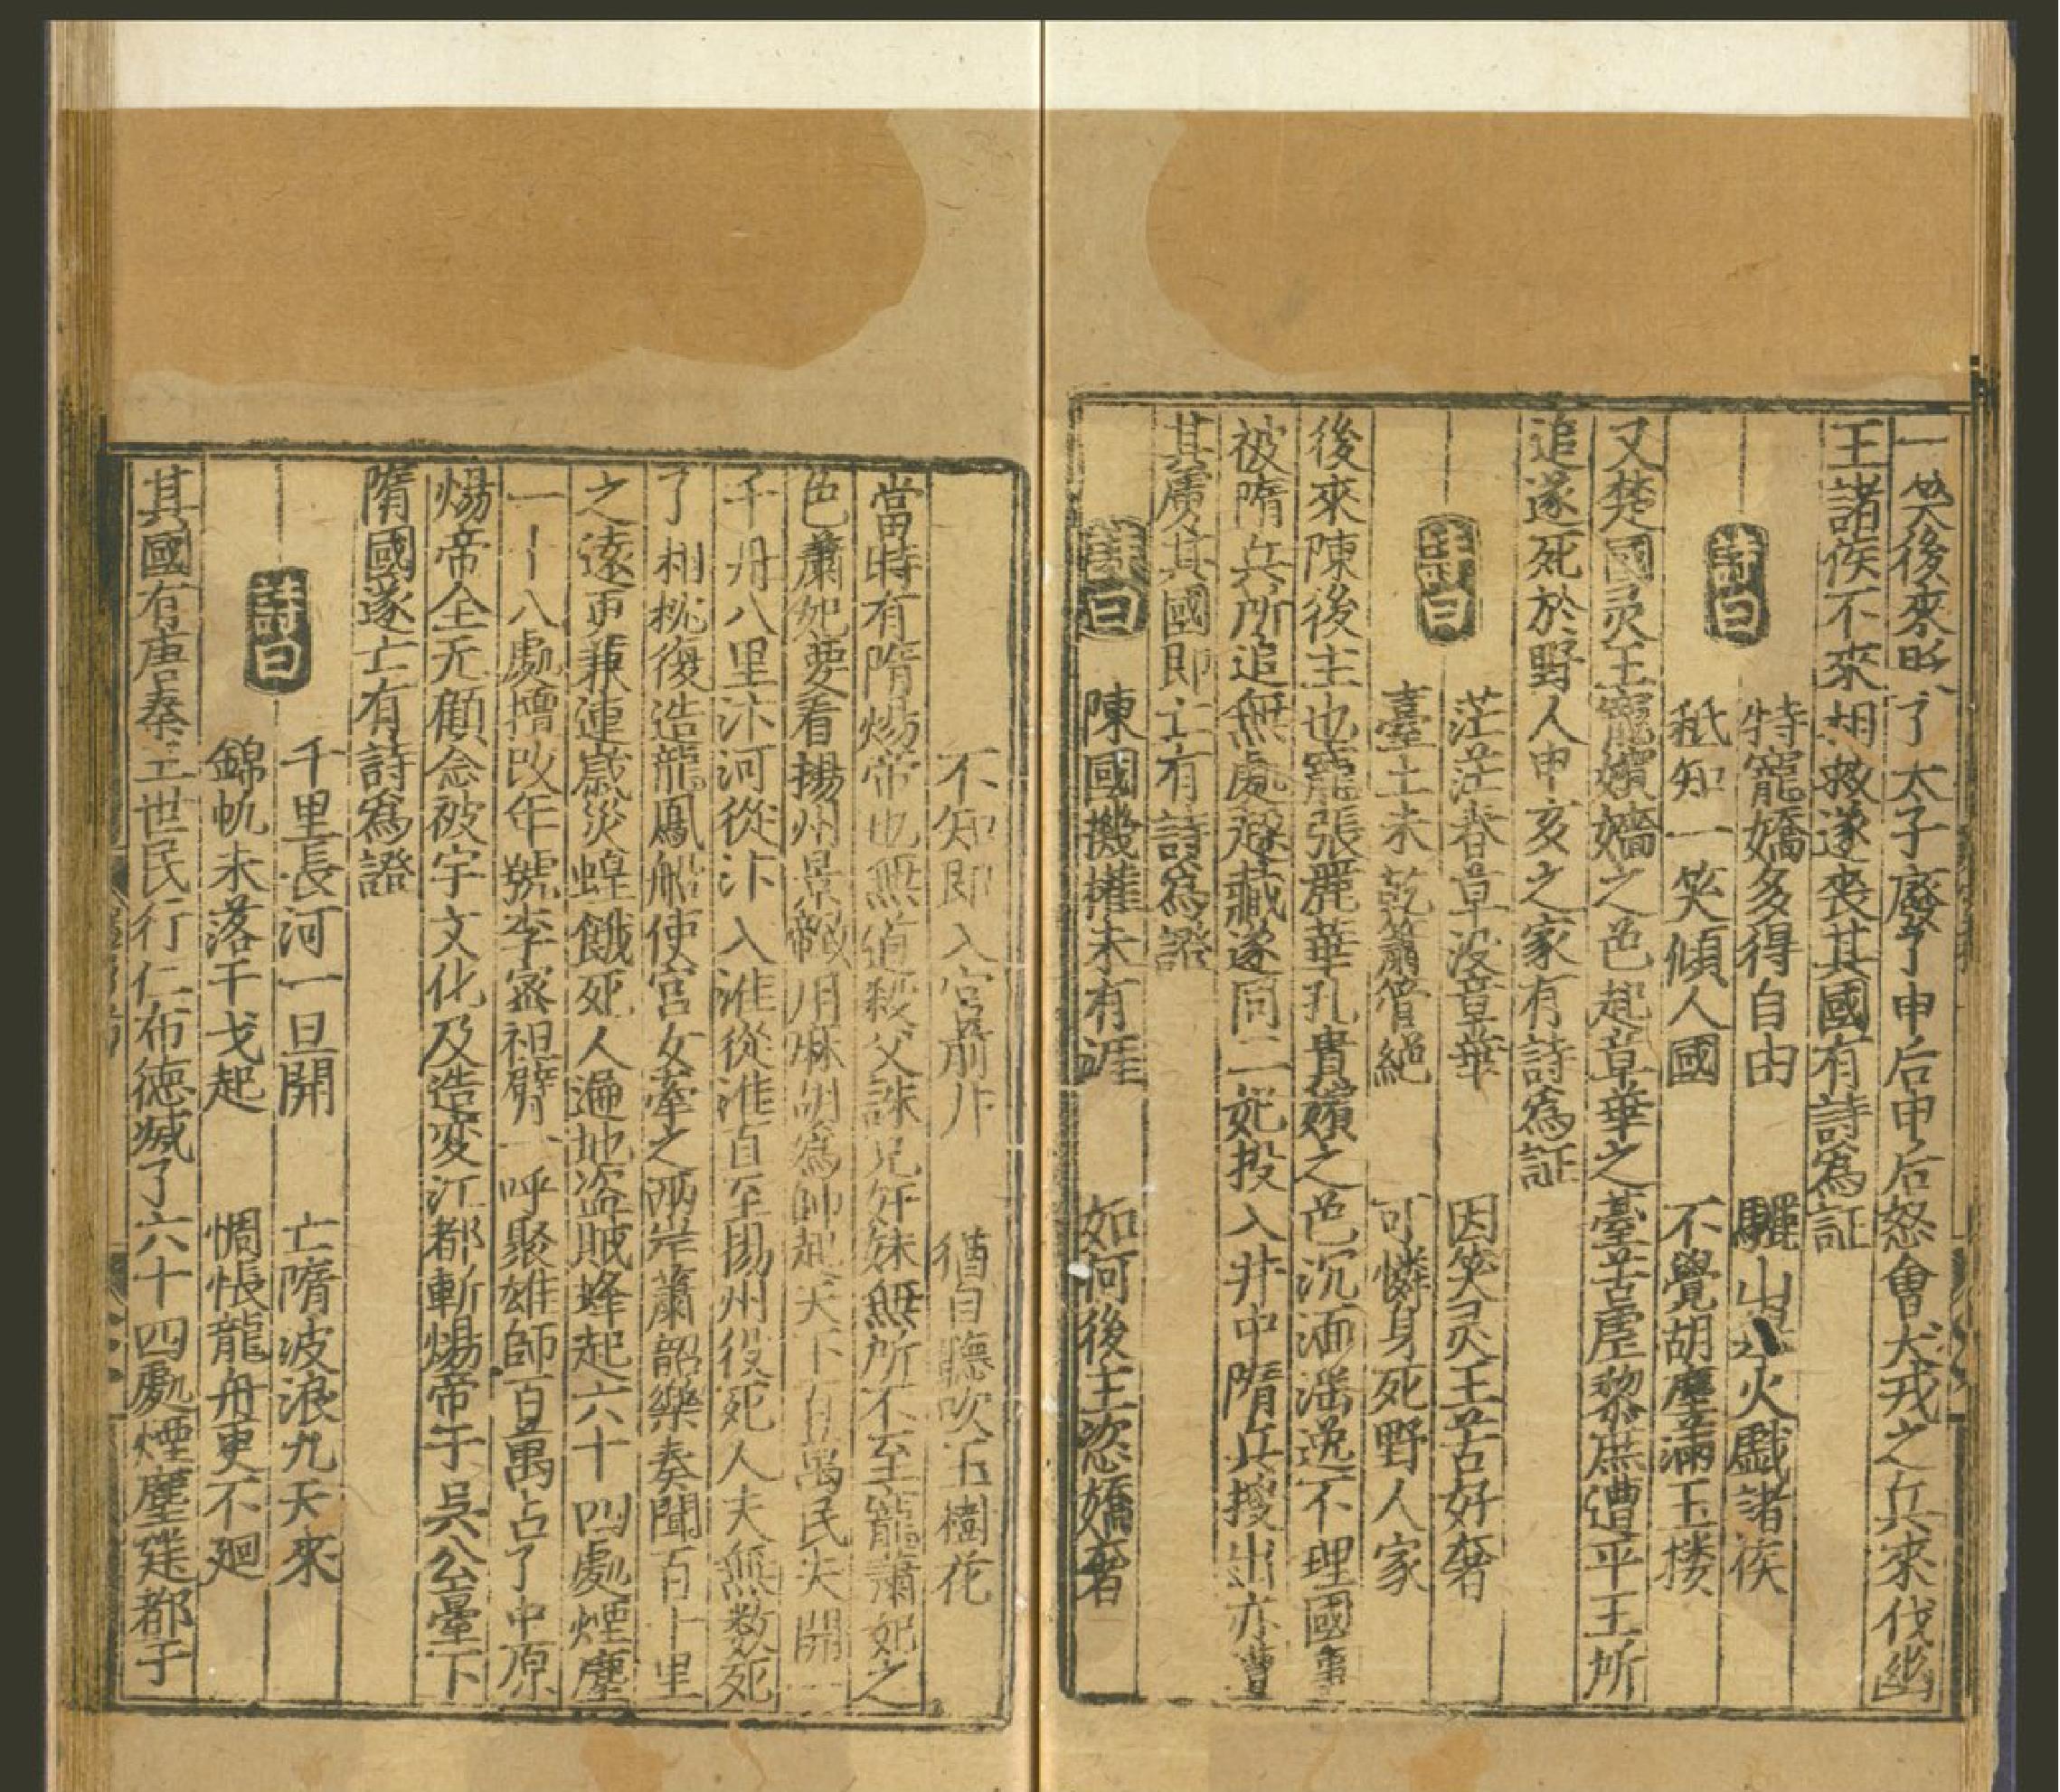 一笑後來貶了太子廢了申后申后怒會犬戎之兵來伐幽
王諸侯不來相救遂喪其國有詩為証
詩曰 特寵嬌多得自由 驪山火戲諸侯
秪知一笑傾人國 不覺胡塵滿玉楼
又楚國灵王寵嬪嬙之色起章華之臺苦虐黎庶遭平王所
追遂死於野人申亥之家有詩為証
詩曰 茫茫春草没章華 因笑灵王苦好奢
臺土未乾簫管絕 可憐身死野人家
後來陳後主也寵張麗華孔貴嬪之色沉湎滛逸不理國事
被隋兵所追無處躱藏遂同二妃投入井中隋兵搜出亦遭
其虜其國即亡有詩為證
詩曰 陳國機權未有涯 如何後主恣嬌奢
不知即入宮前井 猶自聽吹玉樹花
當時有隋煬帝也無道殺父誅兄奸妹無所不至寵蕭妃之
色蕭妃要看揚州景帝用麻胡為帥起天下百萬民夫開一
千丹八里汴河從汴入淮從淮直至楊州役死人夫無数死
了相枕復造龍鳳船使宮女牽之两岸蕭韶樂奏聞百十里
之遠更兼連歲災蝗餓死人遍地盗賊蜂起六十四處煙塵
一十八處擅改年號李密袒臂一呼聚雄師百萬占了中原
煬帝全无顧念被宇文化及造変江都斬煬帝于吳公臺下
隋國遂亡有詩為證
詩曰 千里長河一旦開 亡隋波浪九天來
錦帆未落干戈起 惆悵龍舟更不廻
其國有唐秦王世民行仁布德滅了六十四處煙塵建都于